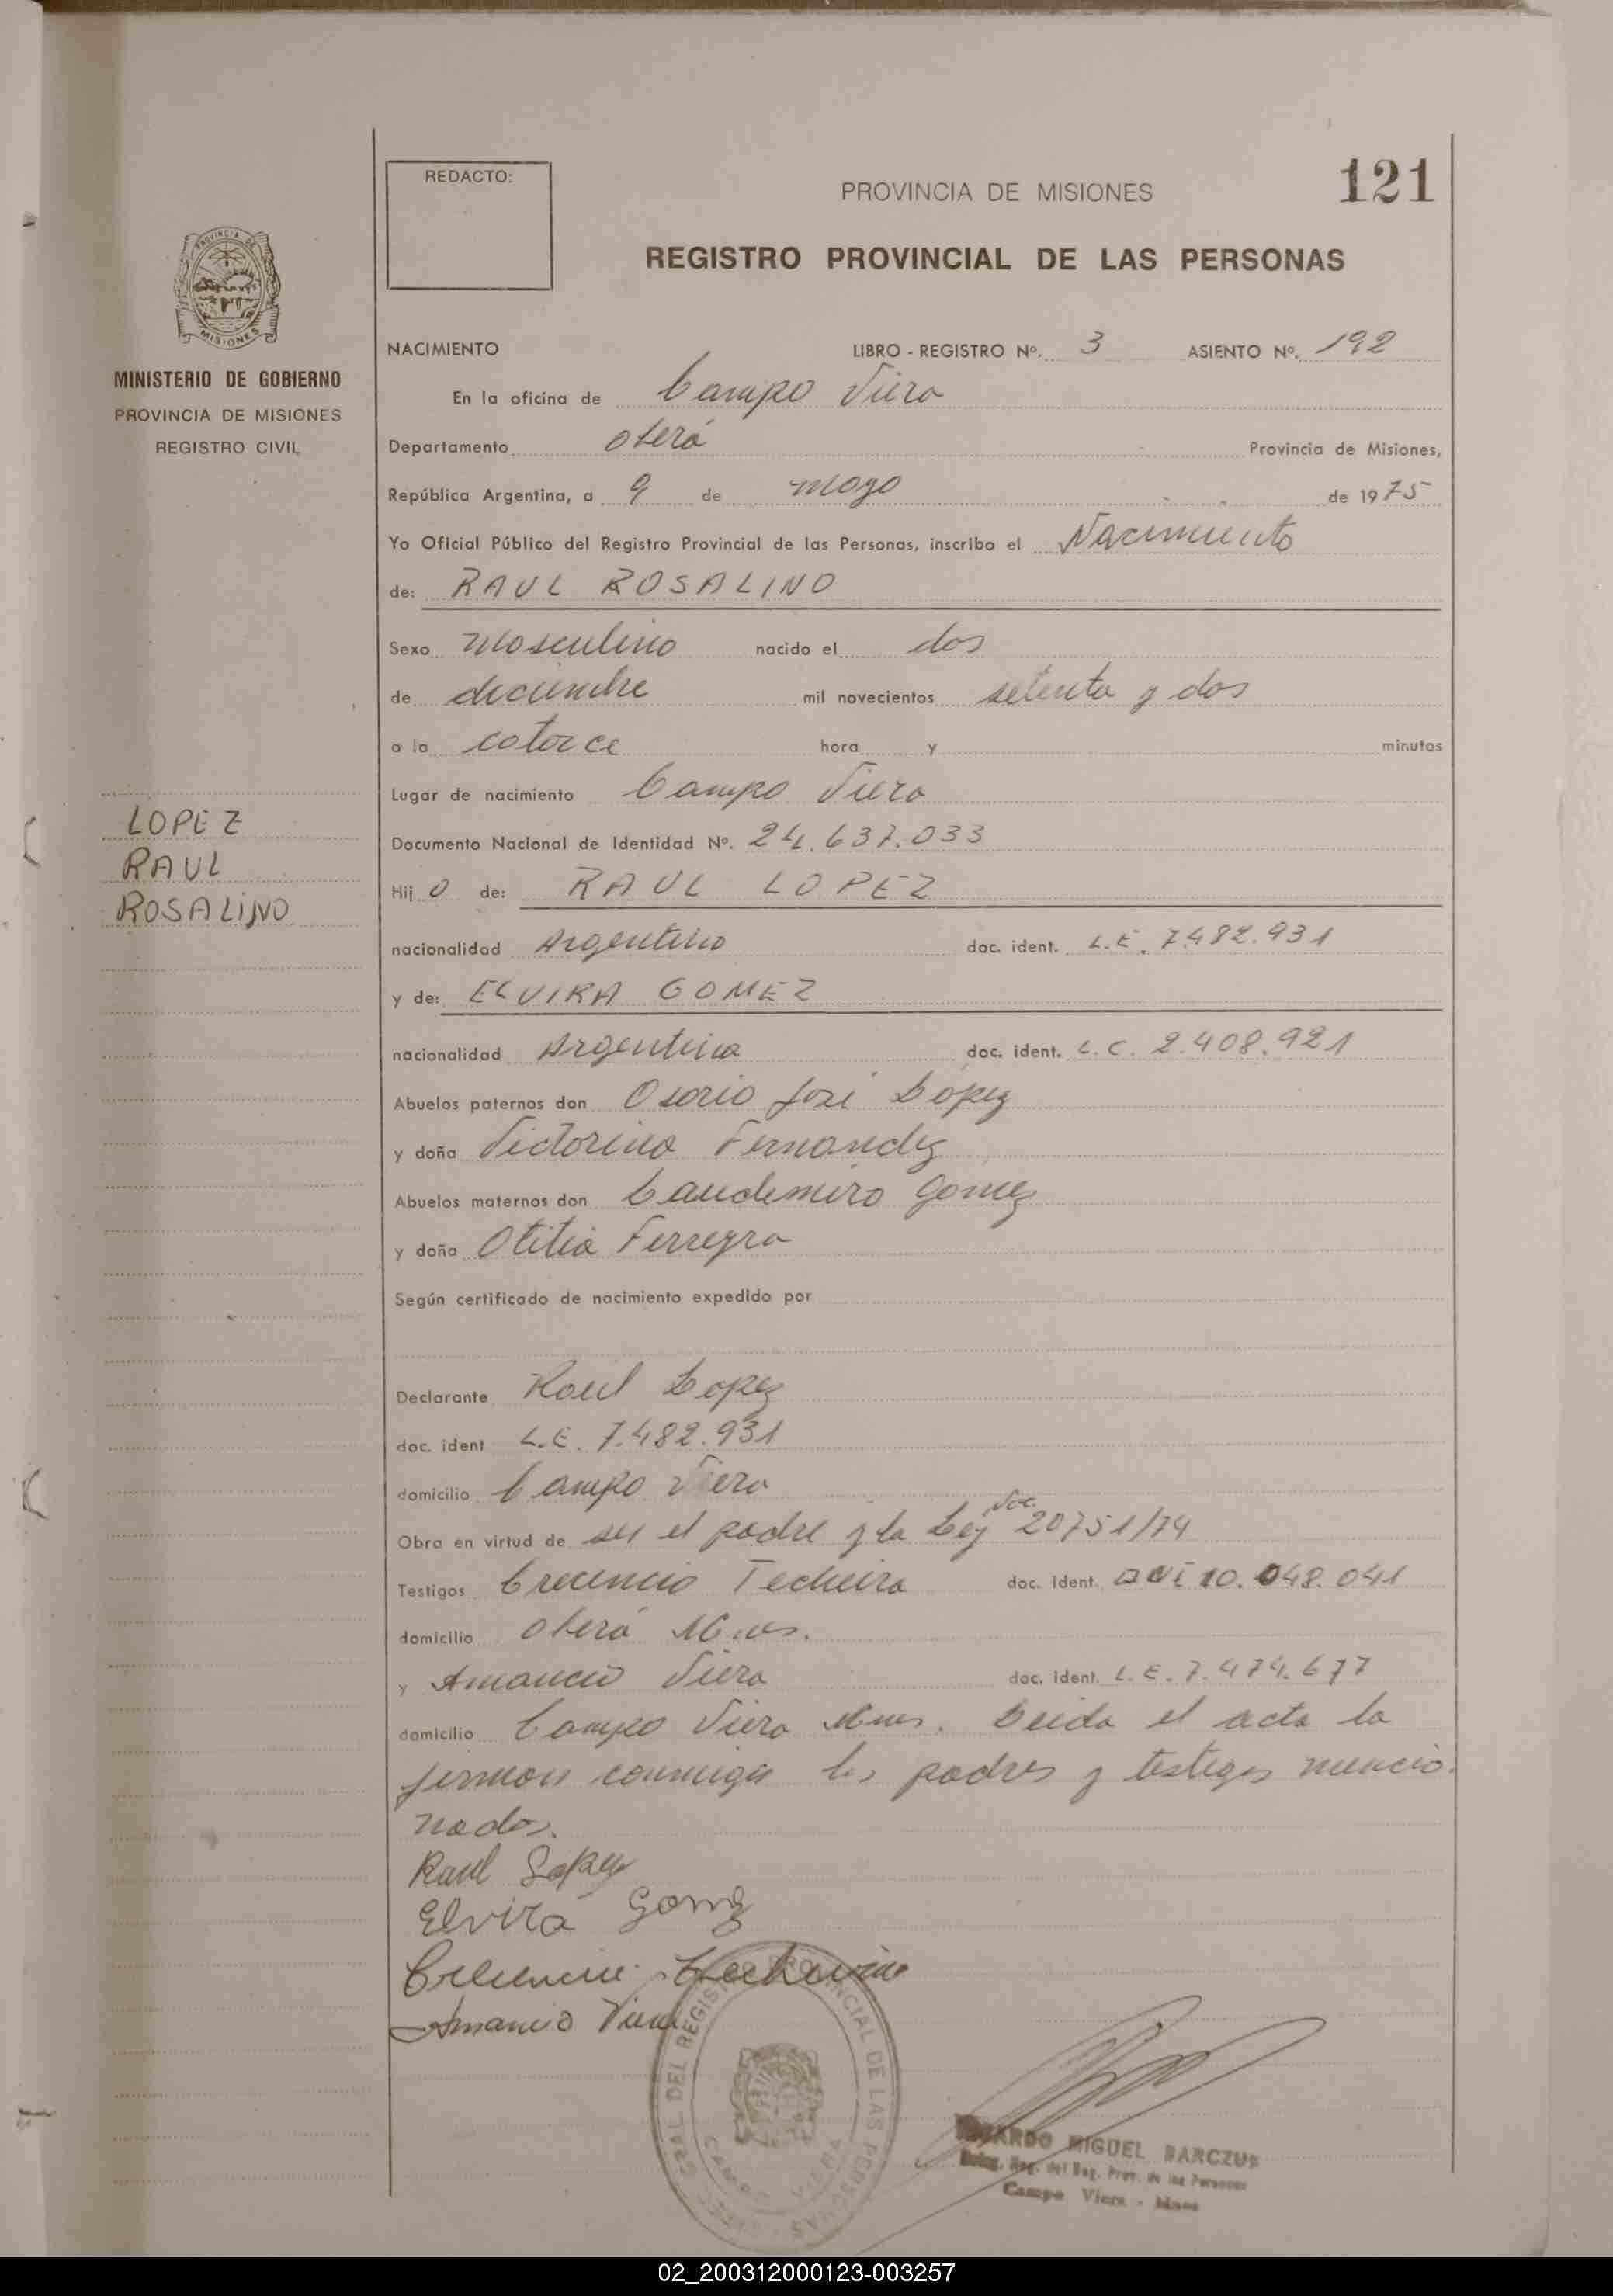 REDACTO:
PROVINCIA DE MISIONES
121
REGISTRO PROVINCIAL DE LAS PERSONAS
PROVINCIA DE
MISIONES
MINISTERIO DE GOBIERNO
PROVINCIA DE MISIONES
REGISTRO CIVIL
NACIMIENTO LIBRO - REGISTRO Nº. 3 ASIENTO Nº. 192
En la oficina de Campo Viera
Departamento Oberá Provincia de Misiones,
República Argentina, a 9 de mayo de 1975
Yo Oficial Público del Registro Provincial de las Personas, inscribo el Nacimiento
de: RAUL ROSALINO
Sexo masculino nacido el dos
de diciembre mil novecientos setenta y dos
a la catorce hora y minutos
Lugar de nacimiento Campo Viera
LOPEZ
RAUL
ROSALINO
Documento Nacional de Identidad Nº. 24.637.033
Hij o de: RAUL LOPEZ
nacionalidad Argentino doc. ident. L.E. 7.482.931
y de: ELVIRA GOMEZ
nacionalidad Argentina doc. ident. L.C. 2.408.921
Abuelos paternos don Osorio José López
y doña Victorina Fernandez
Abuelos maternos don Gomez
y doña Otilia Ferreyra
Según certificado de nacimiento expedido por
Declarante Raúl Lopez
doc. ident L.E. 7.482.931
domicilio Campo Viera
Obra en virtud de ser el padre y la Ley Nac. 20751/74
Testigos Crecencio Techeira doc. ident. DNI 10.048.041
domicilio Oberá Mnes.
y Amancio Viera doc. ident. L.E. 7.474.677
domicilio Campo Viera Mnes. Leida el acta la
firman conmigo los padres y testigos mencio-
nados.
Raul Lopez
Elvira Gomez
Crecencio Techeira
Amancio Viera
GRAL DEL REGISTRO PROVINCIAL DE LAS PERSONAS
CAMPO VIERA
MIGUEL BARCZUS
Deleg. Reg. del Reg. Prov. de las Personas
Campo Viera - Mnes
02_200312000123-003257